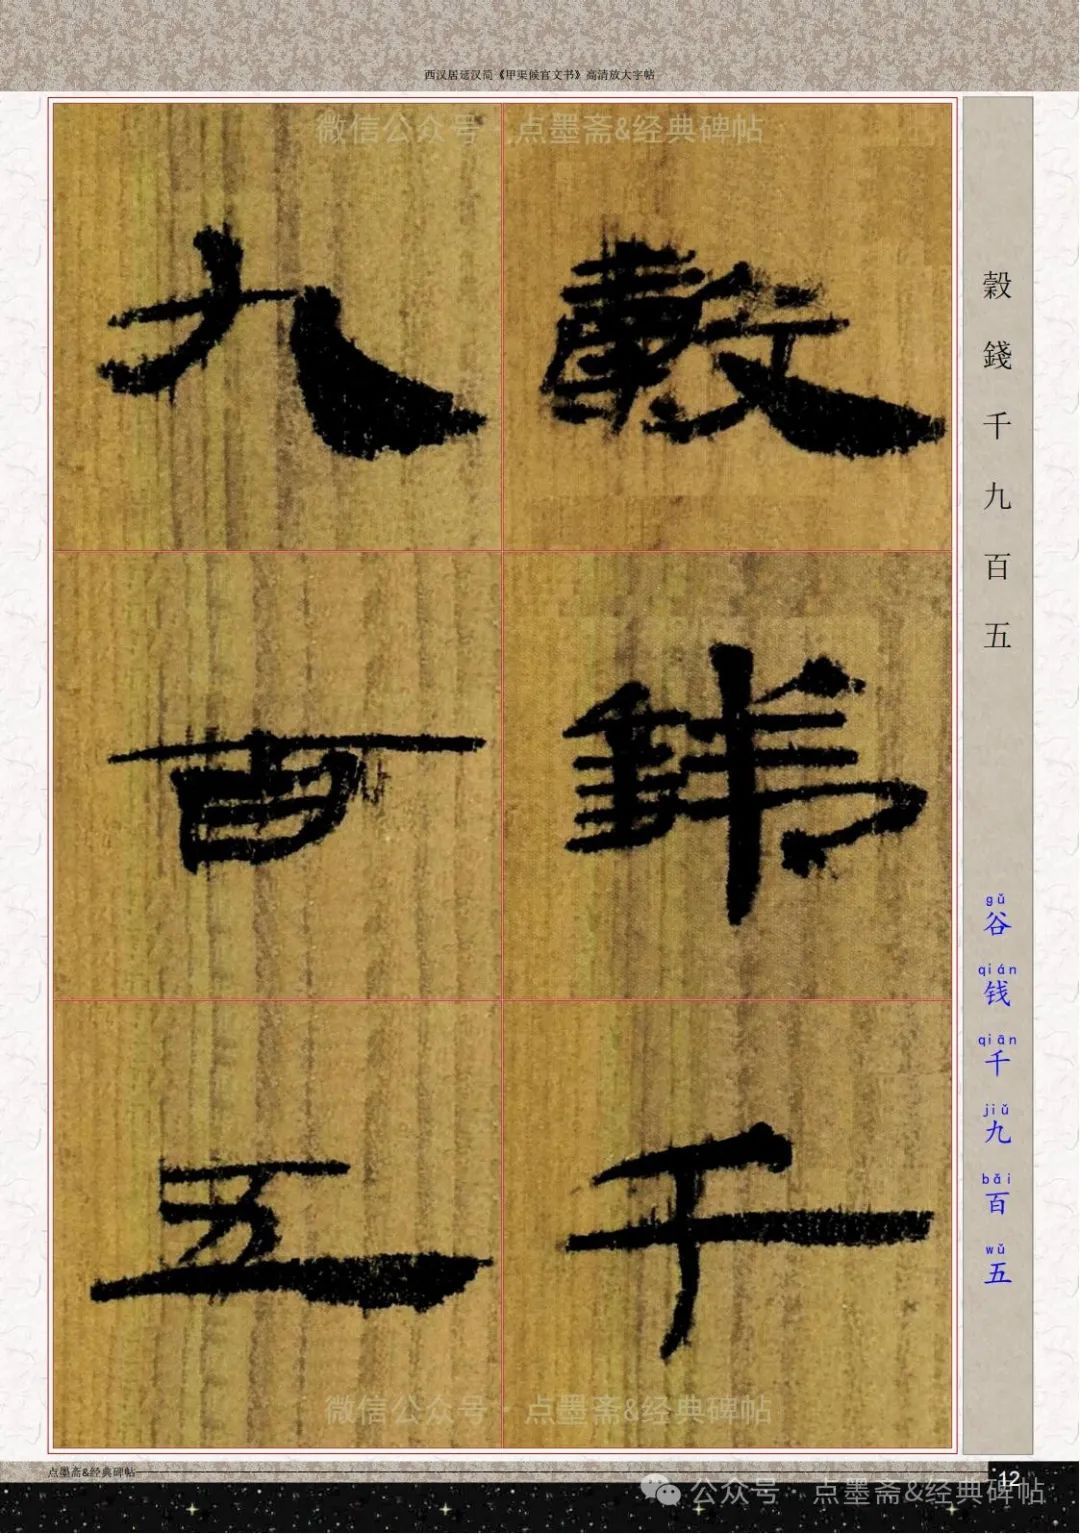 西汉居延汉简《甲渠候官文书》高清放大字帖
微信公众号·点墨斋&经典碑帖
穀錢千
九百五
穀錢千九百五
gǔ qián qiān jiǔ bǎi wǔ
谷钱千九百五
微信公众号·点墨斋&经典碑帖
点墨斋&经典碑帖
12
公众号·点墨斋&经典碑帖